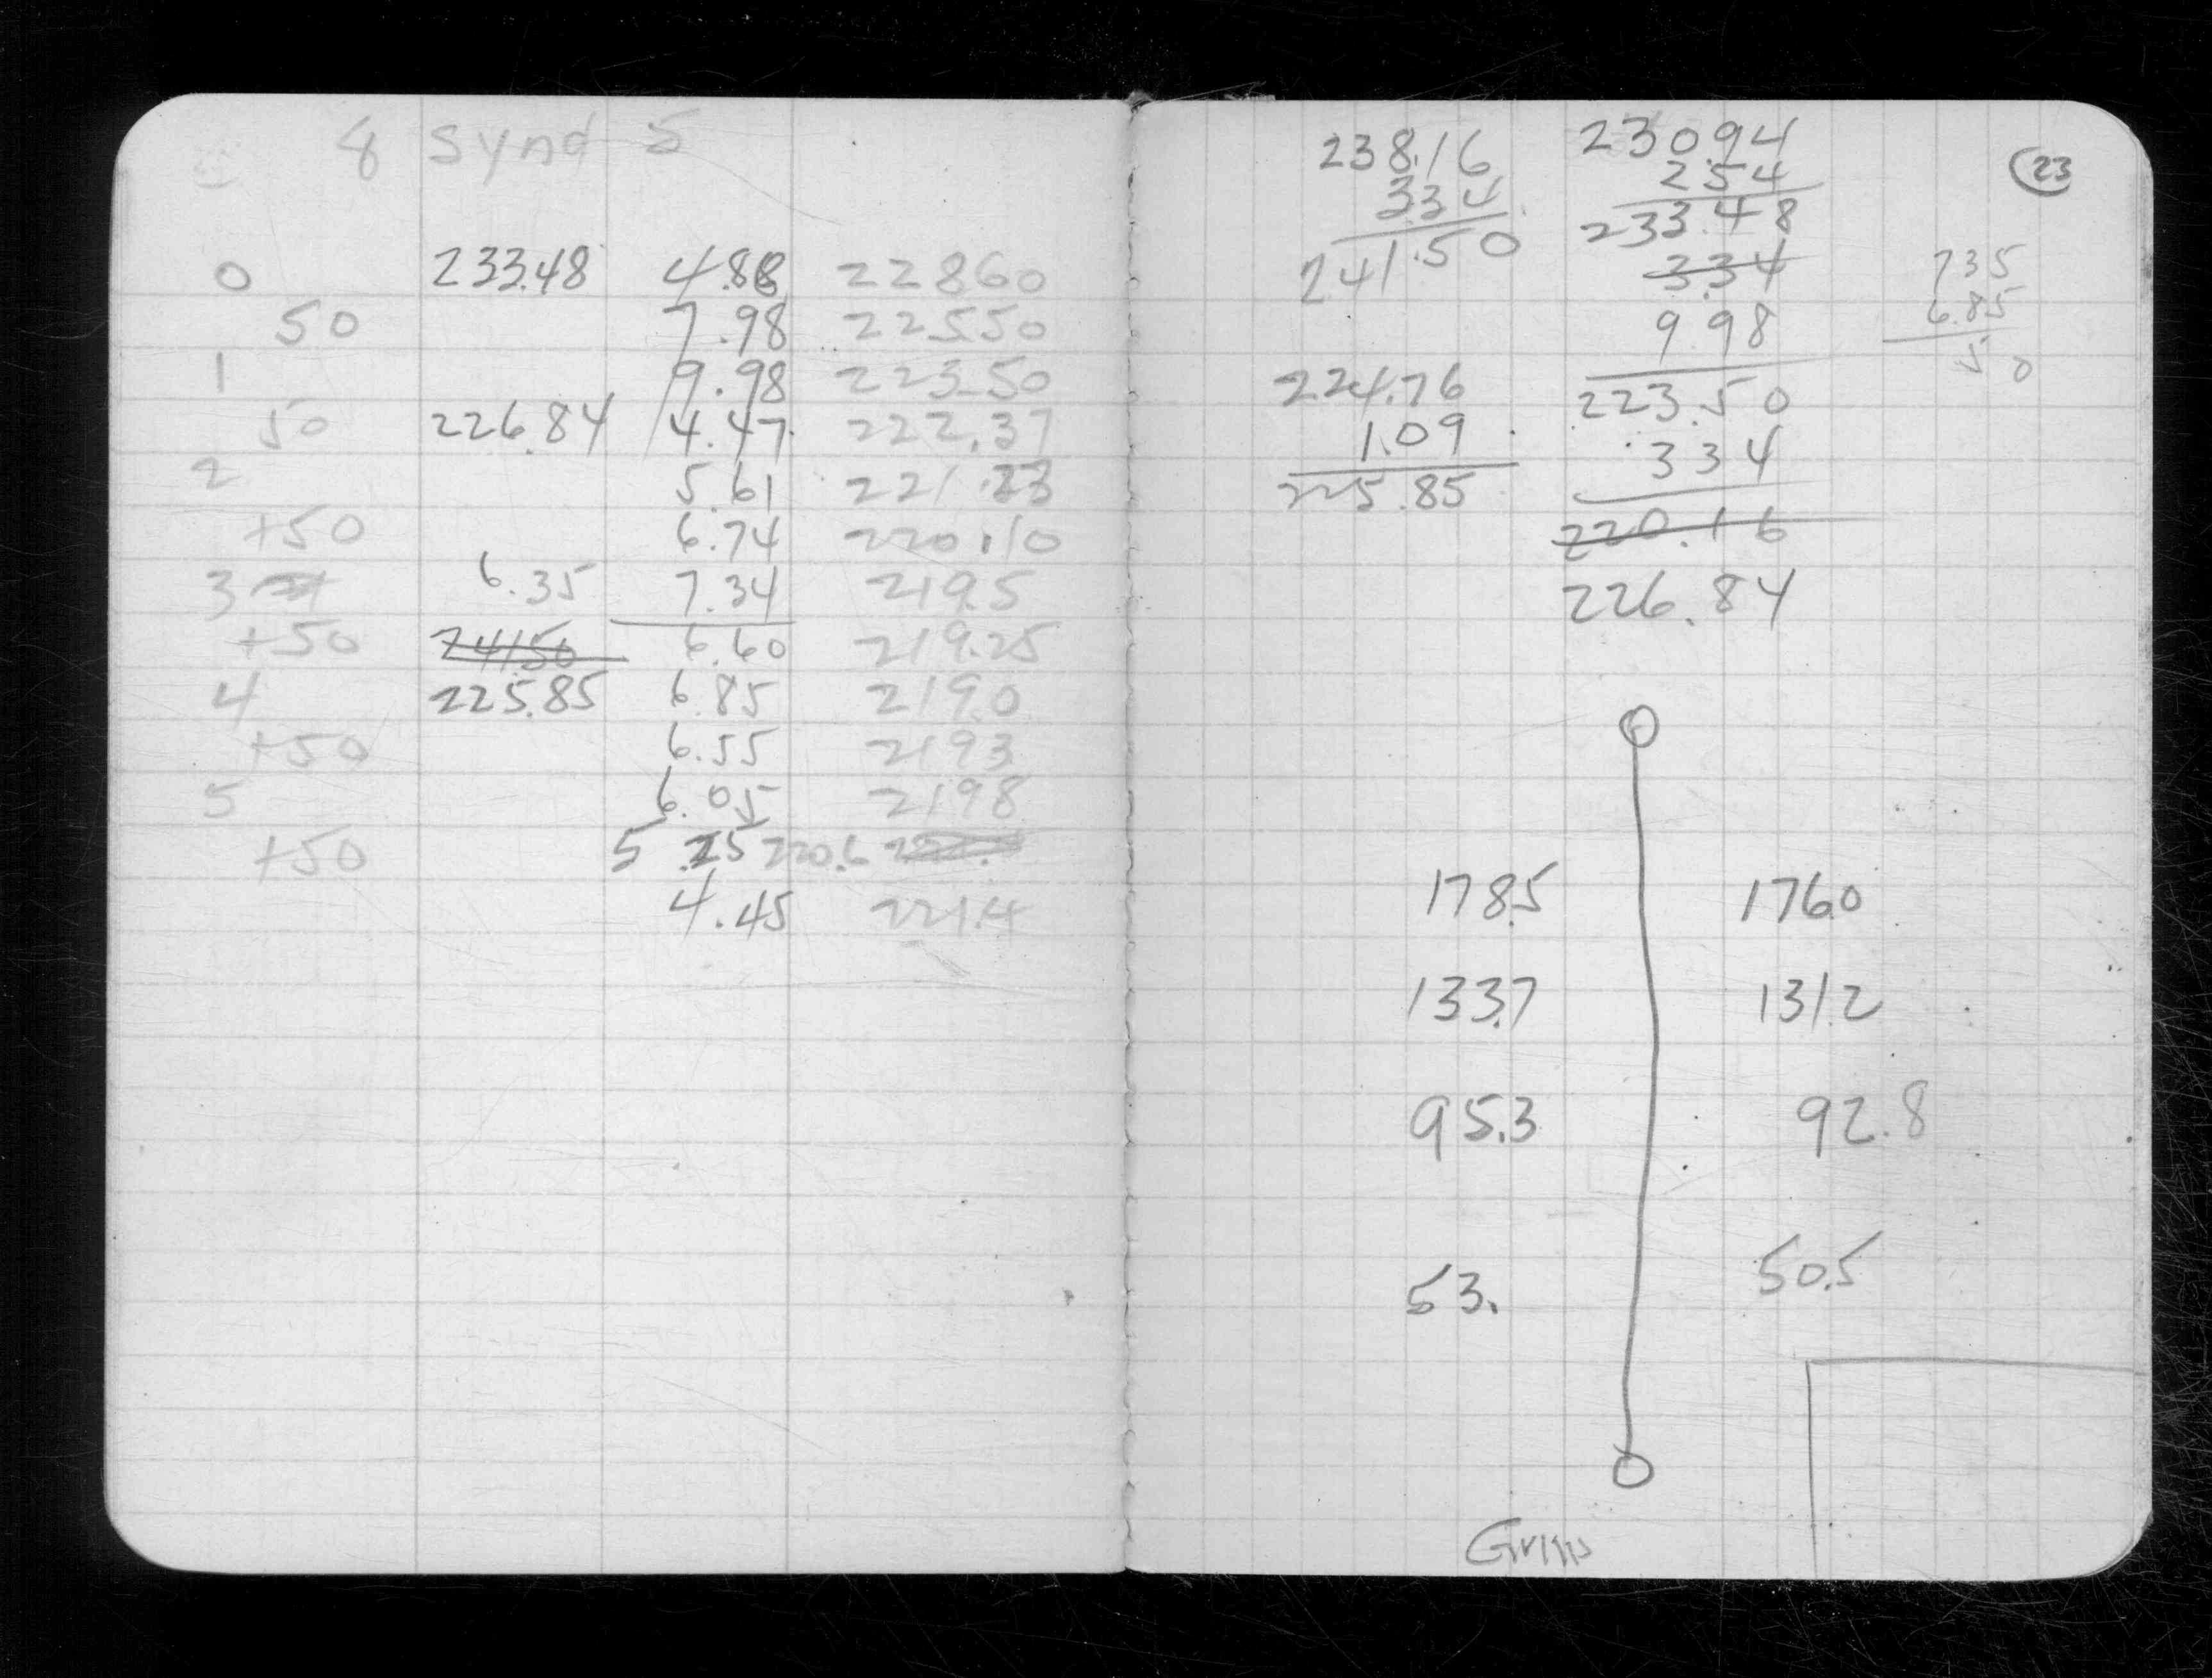 8 Synd 5
0 233.48 4.88 228 60
50 7.98 225.50
1 9.98 223.50
50 226.84 4.47 222.37
2 5.61 221.23
+50 6.74 220.10
3 6.35 7.34 219.5
+50 24150 6.60 219.25
4 225.85 6.85 219.0
+50 6.55 2193
5 6.05 2198
+50 5.25 220.6
4.45 221.4
23
238.16
3.34
241.50
224.76
1.09
225.85
230.94
254
233.48
3.34
9.98
223.50
334
220.16
226.84
735
6.85
50
178.5 176.0
133.7 131.2
95.3 92.8
53. 50.5